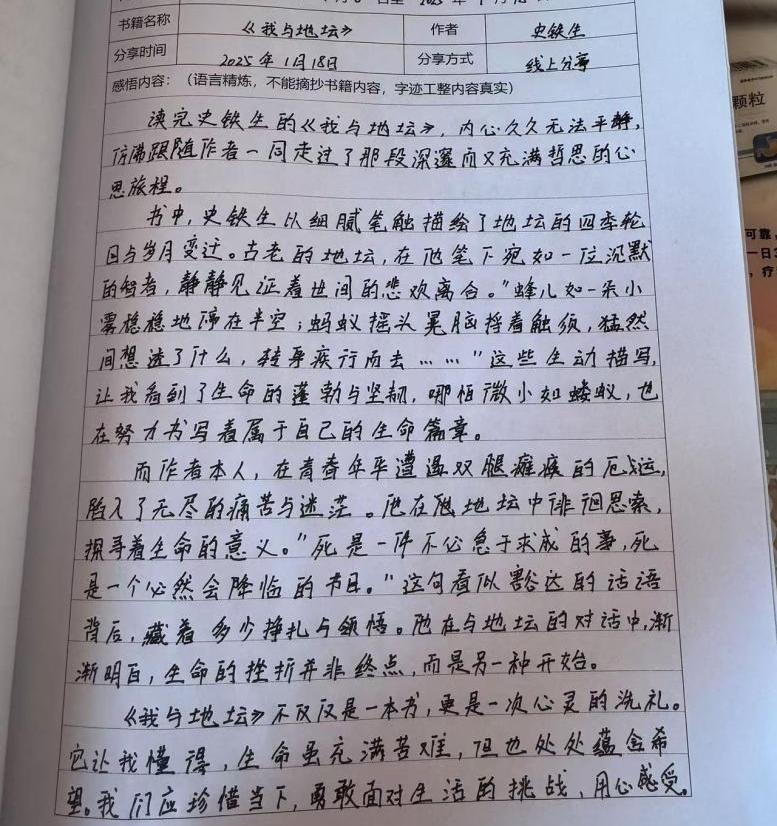 书籍名称 《我与地坛》 作者 史铁生
分享时间 2025年1月18日 分享方式 线上分享
感悟内容：（语言精炼，不能摘抄书籍内容，字迹工整内容真实）
读完史铁生的《我与地坛》，内心久久无法平静，
仿佛跟随作者一同走过了那段深邃而又充满哲思的心
思旅程。
书中，史铁生以细腻笔触描绘了地坛的四季轮
回与岁月变迁。古老的地坛，在他笔下宛如一位沉默
的智者，静静见证着世间的悲欢离合。"蜂儿如一朵小
雾稳稳地停在半空；蚂蚁摇头晃脑捋着触须，猛然
间想透了什么，转身疾行而去……"这些生动描写，
让我看到了生命的蓬勃与坚韧，哪怕微小如蝼蚁，也
在努力书写着属于自己的生命篇章。
而作者本人，在青春年华遭遇双腿瘫痪的厄运，
陷入了无尽的痛苦与迷茫。他在地坛中徘徊思索，
探寻着生命的意义。"死是一件不必急于求成的事，死
是一个必然会降临的节日。"这句看似豁达的话语
背后，藏着多少挣扎与领悟。他在与地坛的对话中，渐
渐明白，生命的挫折并非终点，而是另一种开始。
《我与地坛》不仅仅是一本书，更是一次心灵的洗礼。
它让我懂得，生命虽充满苦难，但也处处蕴含希
望。我们应珍惜当下，勇敢面对生活的挑战，用心感受。
颗粒
可靠，
一日3
，疗